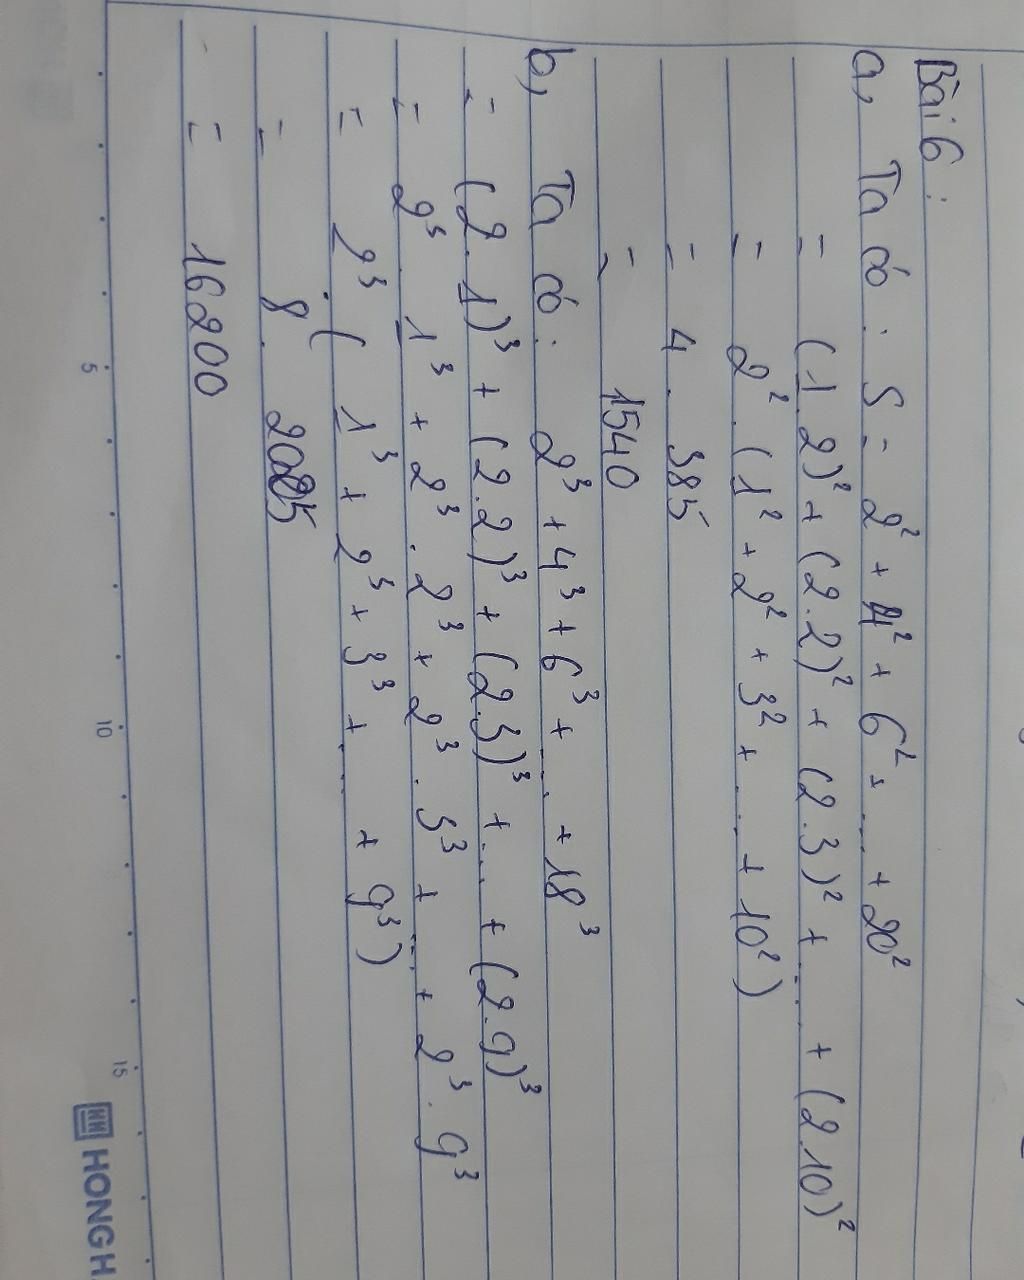 Bài 6:
a, Ta có: S = 2² + 4² + 6² + ... + 20²
= (1.2)² + (2.2)² + (2.3)² + ... + (2.10)²
= 2². (1² + 2² + 3² + ... + 10²)
= 4. 385
= 1540
b, Ta có: 2³ + 4³ + 6³ + ... + 18³
= (2.1)³ + (2.2)³ + (2.3)³ + ... + (2.9)³
= 2³. 1³ + 2³. 2³ + 2³. 3³ + ... + 2³. 9³
= 2³. (1³ + 2³ + 3³ + ... + 9³)
= 8. 2025
= 16200
5 10 15
HONG H